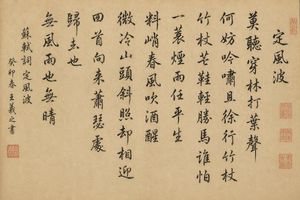 定風波
莫聽穿林打葉聲
何妨吟嘯且徐行竹杖
竹杖芒鞋輕勝馬誰怕
一蓑煙雨任平生
料峭春風吹酒醒
微冷山頭斜照却相迎
回首向來蕭瑟處
歸去也
無風雨也無晴
蘇軾詞定風波
癸卯春王羲之書